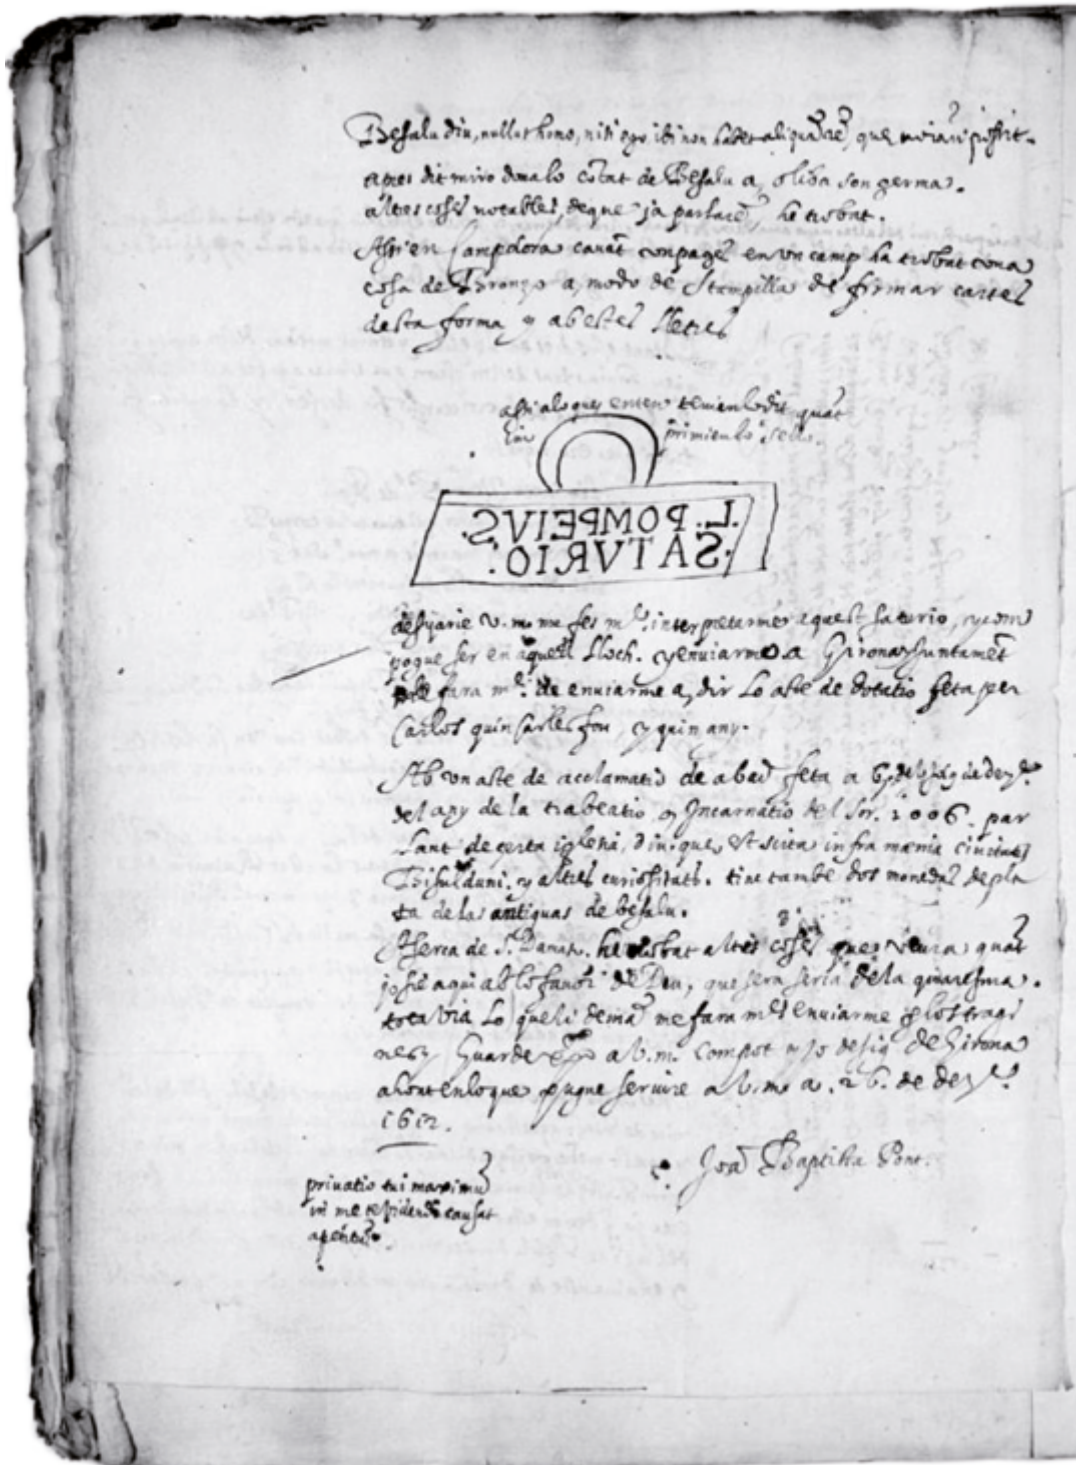 Besalu diu, nullus homo, nisi ego ibi non habet aliquā rē, que
apres dit miro dona lo cōtat de Besalu a, oliba son germa.
altres coses notables, de que ja parlarē, he trobat.
Assi en Campdora cavāt un pages en un camp ha trobat una
cosa de Bronzo a, modo de Stampilla de firmar cartes
desta forma y ab estes lletres
assi a lo que enten tenian lo dit quāt
primien lo sello.
L. POMPEIVS.
SATVRIO.
desijaria v.m. me fes m.e interpretarme aquest saturio, y com
pogue ser en aquell lloch. y enviarmo a Girona Juntamēt
fara m.e de enviarme a, dir Lo acte de dotatio feta per
Carlos quin Carles fou, y quin any.
Ab un acte de acclamatio de abad feta a
del any de la trabeatio y Incarnatio del Sor. 1006. par
lant de certa iglesia, diu que est scita infra mænia civitatis
Bisulduni. y altres curiositats. tinc tambe dos monedas de pla
ta de las antiguas de besalu.
Aserca de S. he trobat altres coses que veura quāt
jo sie aqui ab lo favor de Deu, que sera serca de la quaresma.
toca via Lo que li demā me fara m.e enviarme los tragi
ners y Guarde a V.m. com pot y jo desig de Girona
ahont en lo que puga servire a V.m. a. 26. de
1612.
Joā Baptista Pont.
privatio tui maximū
in me causat